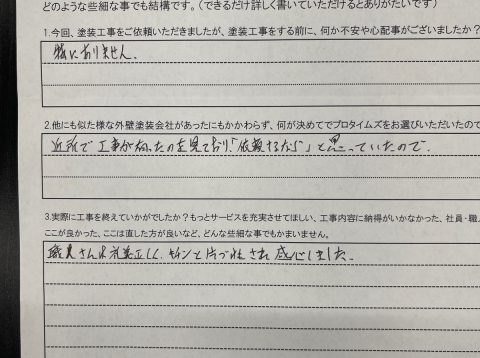 どのような些細な事でも結構です。（できるだけ詳しく書いていただけるとありがたいです）
1.今回、塗装工事をご依頼いただきましたが、塗装工事をする前に、何か不安や心配事がございましたか？
特にありません。
2.他にも似た様な外壁塗装会社があったにもかかわらず、何が決めてでプロタイムズをお選びいただいたので
近所で工事が有ったのを見ており、「依頼するなら」と思っていたので。
3.実際に工事を終えていかがでしたか？もっとサービスを充実させてほしい、工事内容に納得がいかなかった、社員・職
ここが良かった、ここは直した方が良いなど、どんな些細な事でもかまいません。
職人さんは礼儀正しく、キチンと片づけされ感心しました。